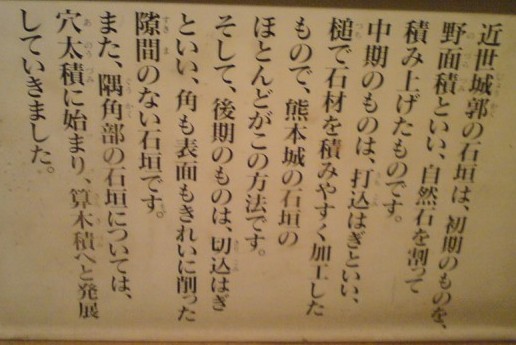 近世城郭の石垣は、初期のものを、
野面積といい、自然石を割って
積み上げたものです。
中期のものは、打込はぎといい、
槌で、石材を積みやすく加工した
もので、熊本城の石垣の
ほとんどがこの方法です。
そして、後期のものは、切込はぎ
といい、角も表面もきれいに削った
隙間のない石垣です。
また、隅角部の石垣については、
穴太積に始まり、算木積へと発展
していきました。